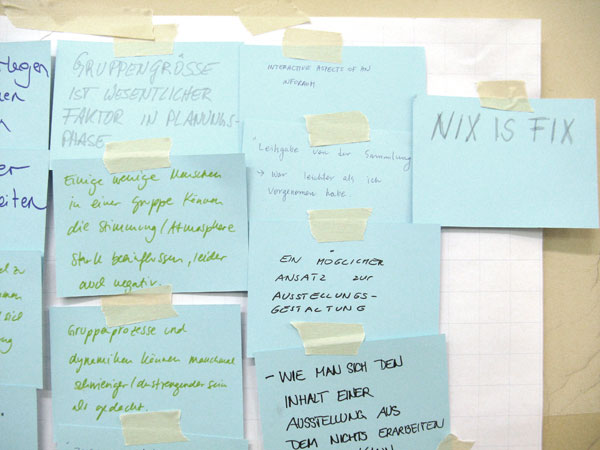 legen
nen
n
er
eiten
d zu
nnen
GRUPPENGRÖSSE
IST WESENTLICHER
FAKTOR IN PLANUNGS-
PHASE
Einige wenige Menschen
in einer Gruppe können
die Stimmung/Atmosphäre
stark beeinflussen, leider
auch negativ.
Gruppenprozesse und
dynamiken können manchmal
schwieriger/anstrengender sein
als gedacht.
INTERACTIVE ASPECTS OF AN
INFORAUM
Leihgabe von der Sammlung
→ War leichter als ich
vorgenommen habe
EIN MÖGLICHER
ANSATZ ZUR
AUSSTELLUNGS-
GESTALTUNG
- WIE MAN SICH DEN
INHALT EINER
AUSSTELLUNG AUS
DEM NICHTS ERARBEITEN
KANN
NIX IS FIX